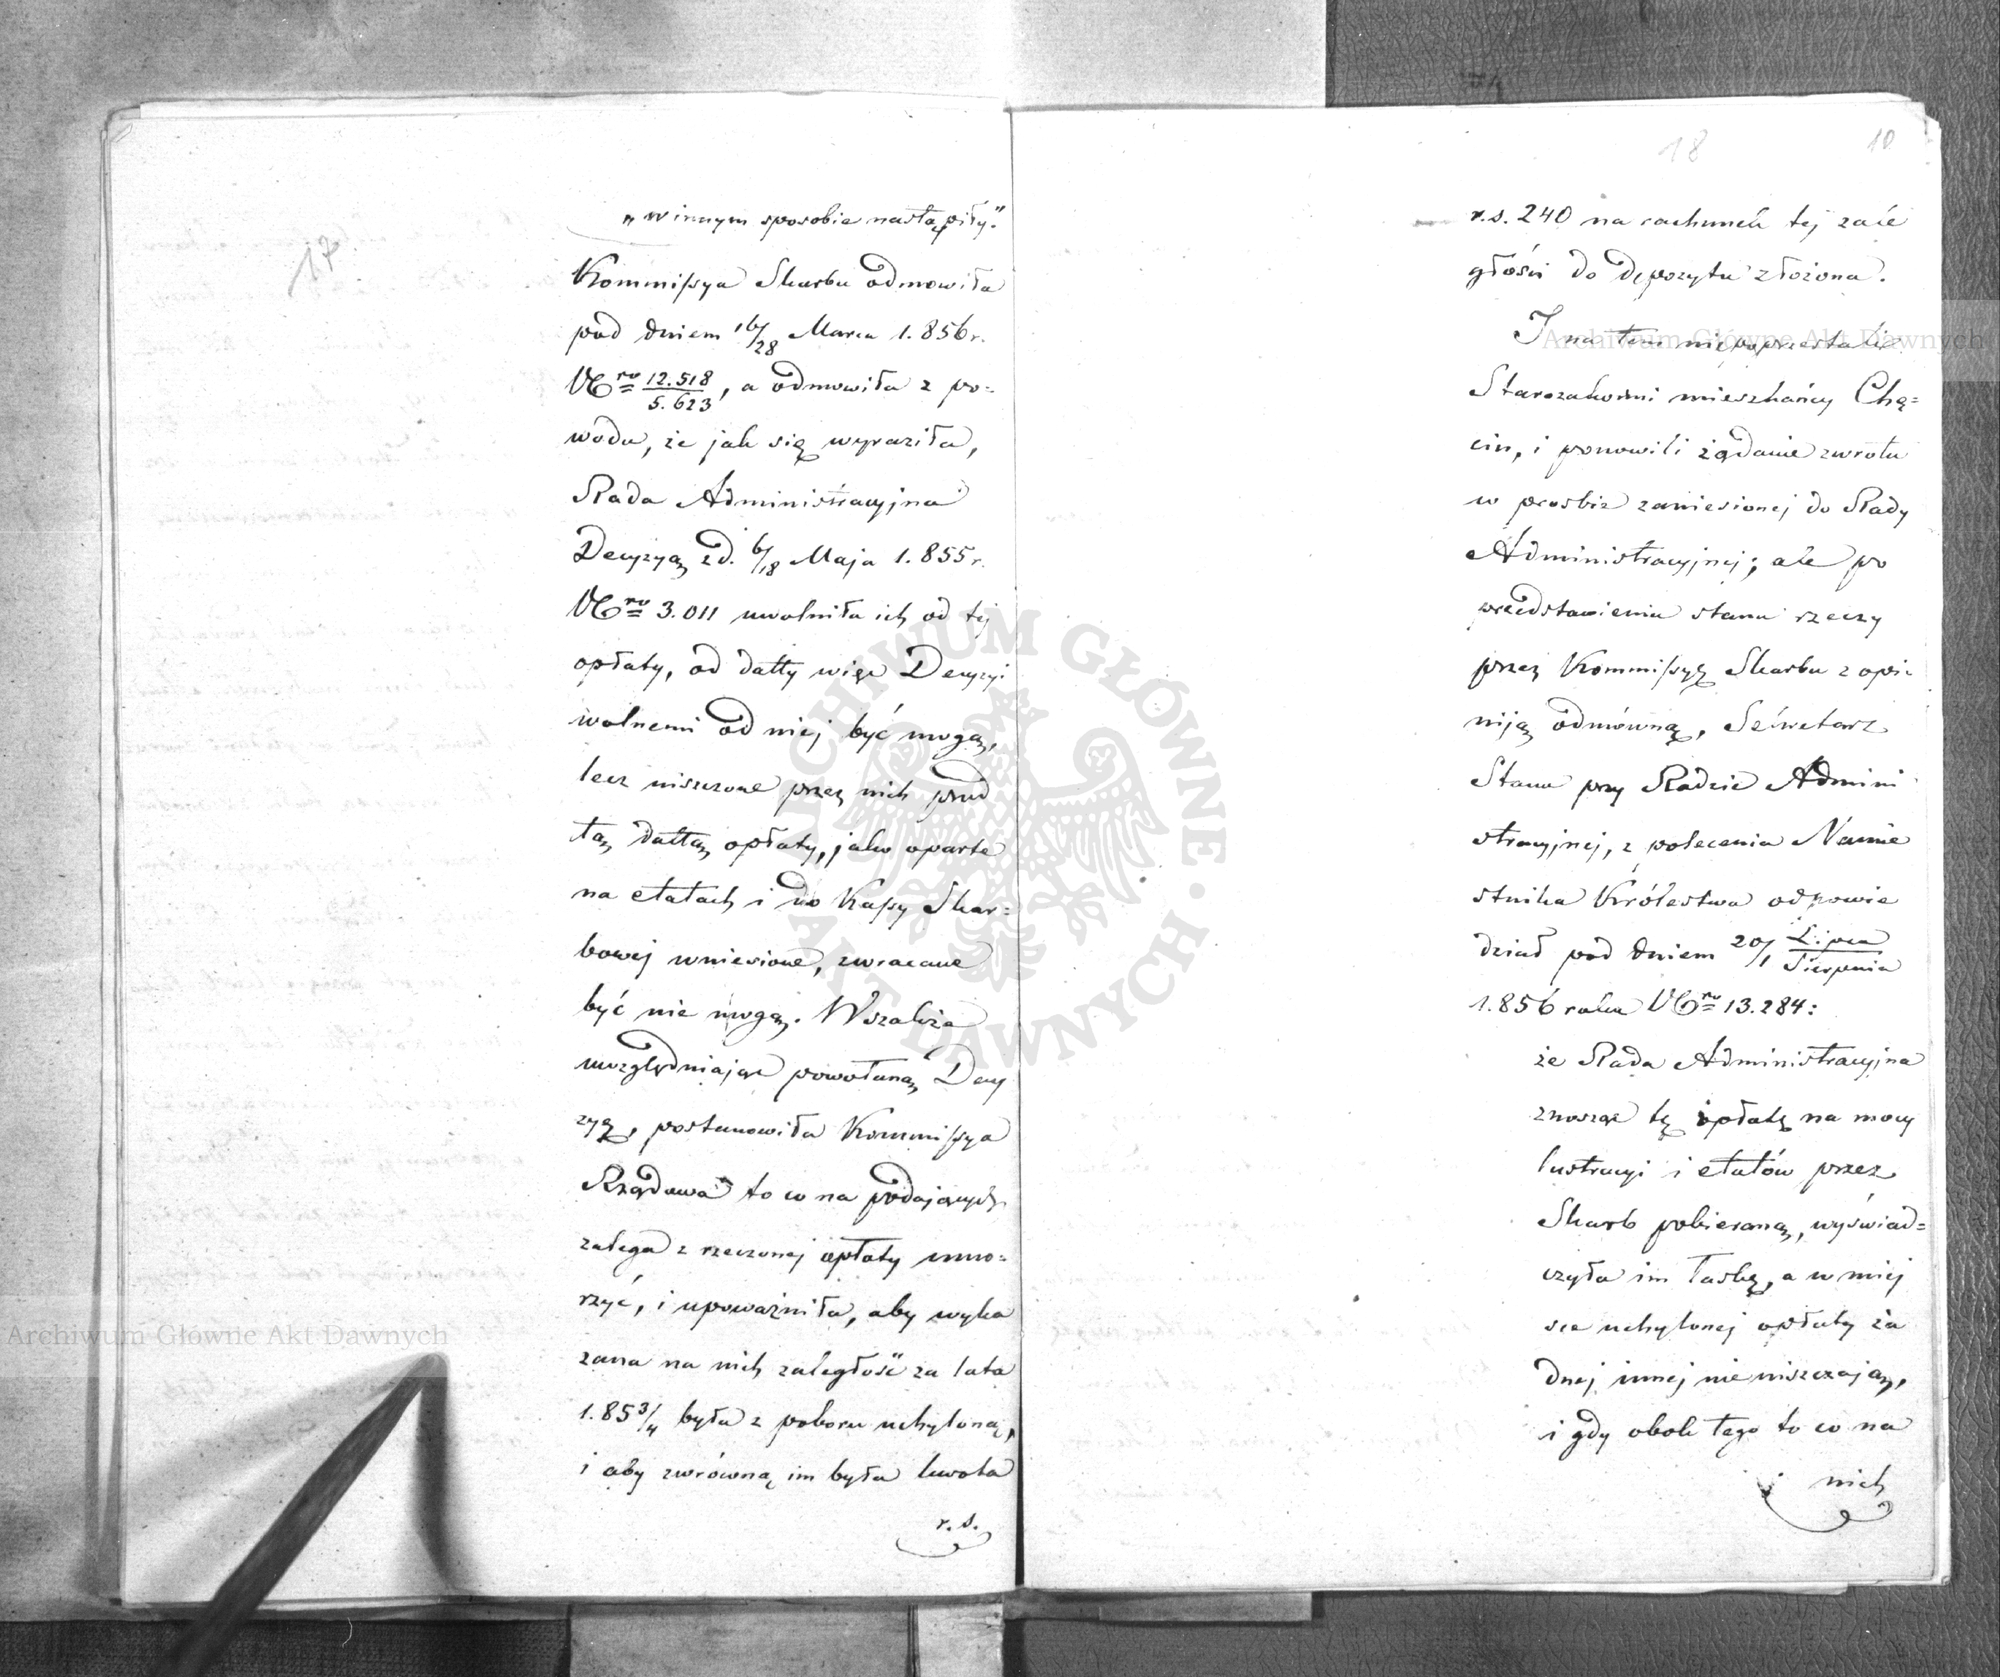 17
„w innym sposobie nastąpiły.”
Kommissya Skarbu odmowiła
pod dniem 16/28 Marca 1.856 r.
Nro 12.518/5.623, a odmowiła z po=
wodu, że jak się wyraziła,
Rada Administracyjna
Decyzyą z d. 6/18 Maja 1.855 r.
Nro 3.011 uwolniła ich od tej
opłaty, od datty więc Decyzyi
wolnemi od niej być mogą,
lecz uiszczone przez nich przed
tą dattą opłaty, jako oparte
na etatach i do Kassy Skar=
bowej wniesione, zwracane
być nie mogą. Wszakże
uwzględniając powołaną Decy
zyę, postanowiła Kommissya
Rządowa to co na podających
zalega z rzeczonej opłaty umo=
rzyć, i upoważniła, aby wyka
zana na nich zaległość za lata
1.85 3/4 była z poboru uchyloną,
i aby zwróconą im była kwota
r. s.
18
10
r. s. 240 na rachunek tej zale
głości do depozytu złożona.
I na tem nie poprzestali
Starozakonni mieszkańcy Chę=
cin, i ponowili żądanie zwrotu
w prośbie zaniesionej do Rady
Administracyjnej; ale po
przedstawieniu stanu rzeczy
przez Kommissyę Skarbu z opi=
niją odmówną, Sekretarz
Stanu przy Radzie Admini
stracyjnej, z polecenia Namie
stnika Królestwa odpowie
dział pod dniem 20/1 Lipca/Sierpnia
1.856 roku Nro 13.284:
że Rada Administracyjna
znosząc tę opłatę na mocy
lustracyi i etatów przez
Skarb pobieraną, wyświad=
czyła im łaskę, a w miej
sce uchylonej opłaty ża
dnej innej nie uiszczają,
i gdy obok tego to co na
nich
Archiwum Główne Akt Dawnych
Archiwum Główne Akt Dawnych
ARCHIWUM GŁÓWNE AKT DAWNYCH